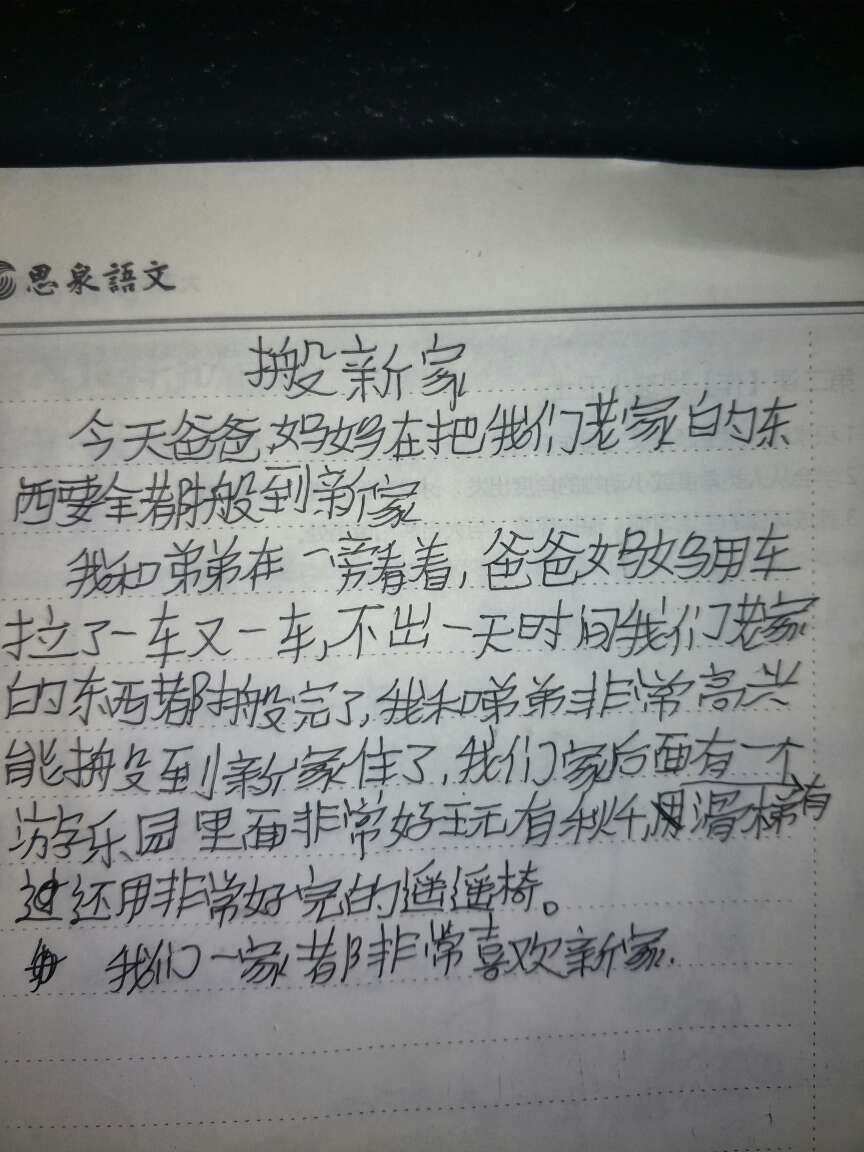 思泉語文
搬新家
今天爸爸妈妈在把我们老家的东
西要全都搬到新家
我和弟弟在一旁看着，爸爸妈妈用车
拉了一车又一车，不出一天时间我们老家
的东西都搬完了，我和弟弟非常高兴
能搬到新家住了，我们家后面有一个
游乐园里面非常好玩有秋千，滑梯有
还用非常好完的遥遥椅。
我们一家都非常喜欢新家.